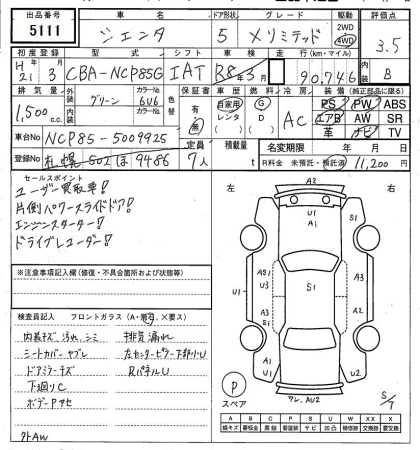 出品番号 車名 ドア形状 グレード 駆動 評価点
5111 シエンタ 5 Xリミテッド 2WD 4WD 3.5
初度登録 型式 シフト 車検 走行(km・マイル) 内装
H21 3 CBA-NCP85G IAT R8年3月 90,746 B
排気量 外装色 カラーNo. 色替 保証書 車歴 燃料 冷房 装備(純正部品に限る)
1,500cc グリーン 6V6 有・無 自家用 G AC PS PW ABS
内装色 カラーNo. レンタ D エアB AW SR
革 ナビ TV
車台No NCP85-5009925 定員 積載量 名変期限 年 月 日
登録No 札幌 502 ほ 9486 7人 t R料金 未預託・預託済 11,200円
セールスポイント
ユーザー買取車!
片側パワースライドドア!
エンジンスターター!
ドライブレコーダー!
※注意事項記入欄(修復・不具合箇所および状態等)
検査員記入 フロントガラス(A・飛石、×要ス)
内装キズ、汚れ、シミ 排気漏れ
シートカバーヤブレ 左センターピラー下部小U
ドアミラーキズ RパネルU
下廻りC
ボデーPタセ
外AW
左 右
A2
U1
A1
A1
AS1 A3
U3 S1
U1 B
A3 A3
S1 S1
U2 U2
ワレ、AU2
P
スペア
S/T
A B C P S U W X XX X
線キズ 腐蝕 要塗装 サビ 凹凸 補修跡 要交換